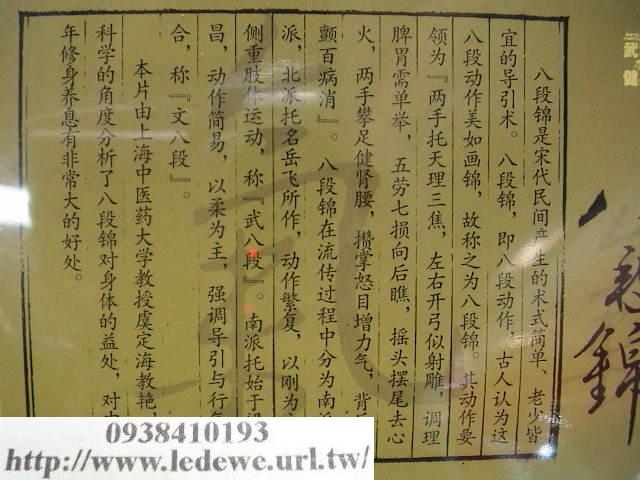 八段锦
八段锦是宋代民间产生的术式简单、老少皆
宜的导引术。八段锦，即八段动作，古人认为这
八段动作美如画锦，故称之为八段锦。其动作要
领为『两手托天理三焦，左右开弓似射雕，调理
脾胃需单举，五劳七损向后瞧，摇头摆尾去心
火，两手攀足健肾腰，攒掌怒目增力气，背
颤百病消』。八段锦在流传过程中分为南
派，北派托名岳飞所作，动作繁复，以刚为
侧重肢体运动，称『武八段』。南派托始于
昌，动作简易，以柔为主，强调导引与行
合，称『文八段』。
本片由上海中医药大学教授虞定海教艳，
科学的角度分析了八段锦对身体的益处，对
年修身养息有非常大的好处。
0938410193
http://www.ledewe.url.tw/